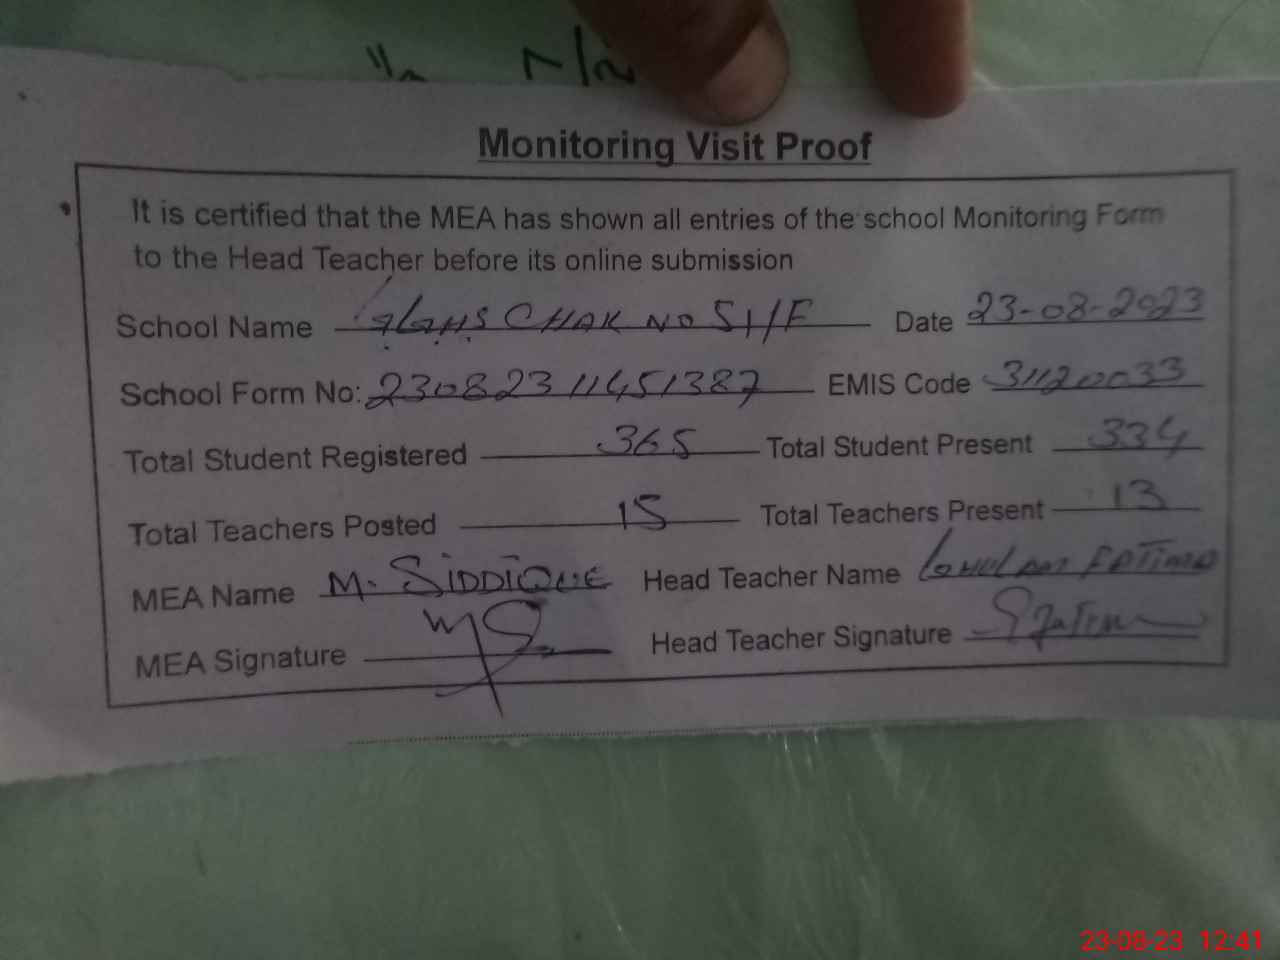 Monitoring Visit Proof
It is certified that the MEA has shown all entries of the school Monitoring Form
to the Head Teacher before its online submission
School Name GGHS CHAK NO 51/F Date 23-08-2023
School Form No: 23082311451387 EMIS Code 31120033
Total Student Registered 365 Total Student Present 334
Total Teachers Posted 15 Total Teachers Present 13
MEA Name M. SIDDIQUE Head Teacher Name FATIMA
MEA Signature Head Teacher Signature
23-08-23 12:41